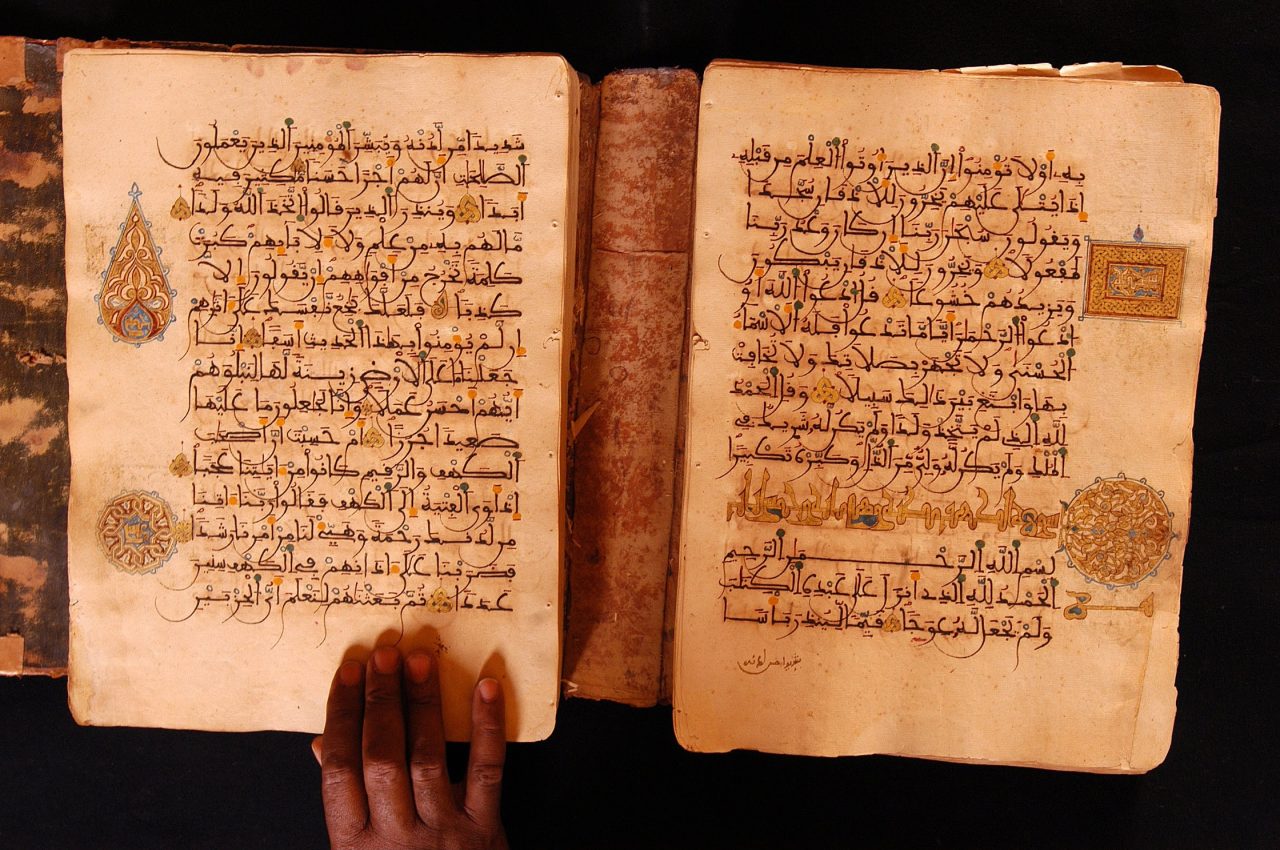 به أو لا تؤمنوا إن الذين أوتوا العلم من قبله
إذا يتلى عليهم يخرون للأذقان سجدا
ويقولون سبحن ربنا إن كان وعد ربنا
لمفعولا ويخرون للأذقان يبكون
ويزيدهم خشوعا قل ادعوا الله أو
ادعوا الرحمن أيا ما تدعوا فله الأسماء
الحسنى ولا تجهر بصلاتك ولا تخافت
بها وابتغ بين ذلك سبيلا وقل الحمد
لله الذي لم يتخذ ولدا ولم يكن له شريك في
الملك ولم يكن له ولي من الذل وكبره تكبيرا
بسم الله الرحمن الرحيم
الحمد لله الذي أنزل على عبده الكتب
ولم يجعل له عوجا قيما لينذر بأسا
شديدا من لدنه
شديدا من لدنه ويبشر المؤمنين الذين يعملون
الصلحت أن لهم أجرا حسنا مكثين فيه
أبدا وينذر الذين قالوا اتخذ الله ولدا
ما لهم به من علم ولا لأبائهم كبرت
كلمة تخرج من أفوههم إن يقولون إلا
كذبا فلعلك بخع نفسك على ءاثرهم
إن لم يؤمنوا بهذا الحديث أسفا إنا
جعلنا ما على الأرض زينة لها لنبلوهم
أيهم أحسن عملا وإنا لجعلون ما عليها
صعيدا جرزا أم حسبت أن أصحب
الكهف والرقيم كانوا من ءايتنا عجبا
إذ أوى الفتية إلى الكهف فقالوا ربنا ءاتنا
من لدنك رحمة وهيئ لنا من أمرنا رشدا
فضربنا على ءاذانهم في الكهف سنين
عددا ثم بعثنهم لنعلم أي الحزبين